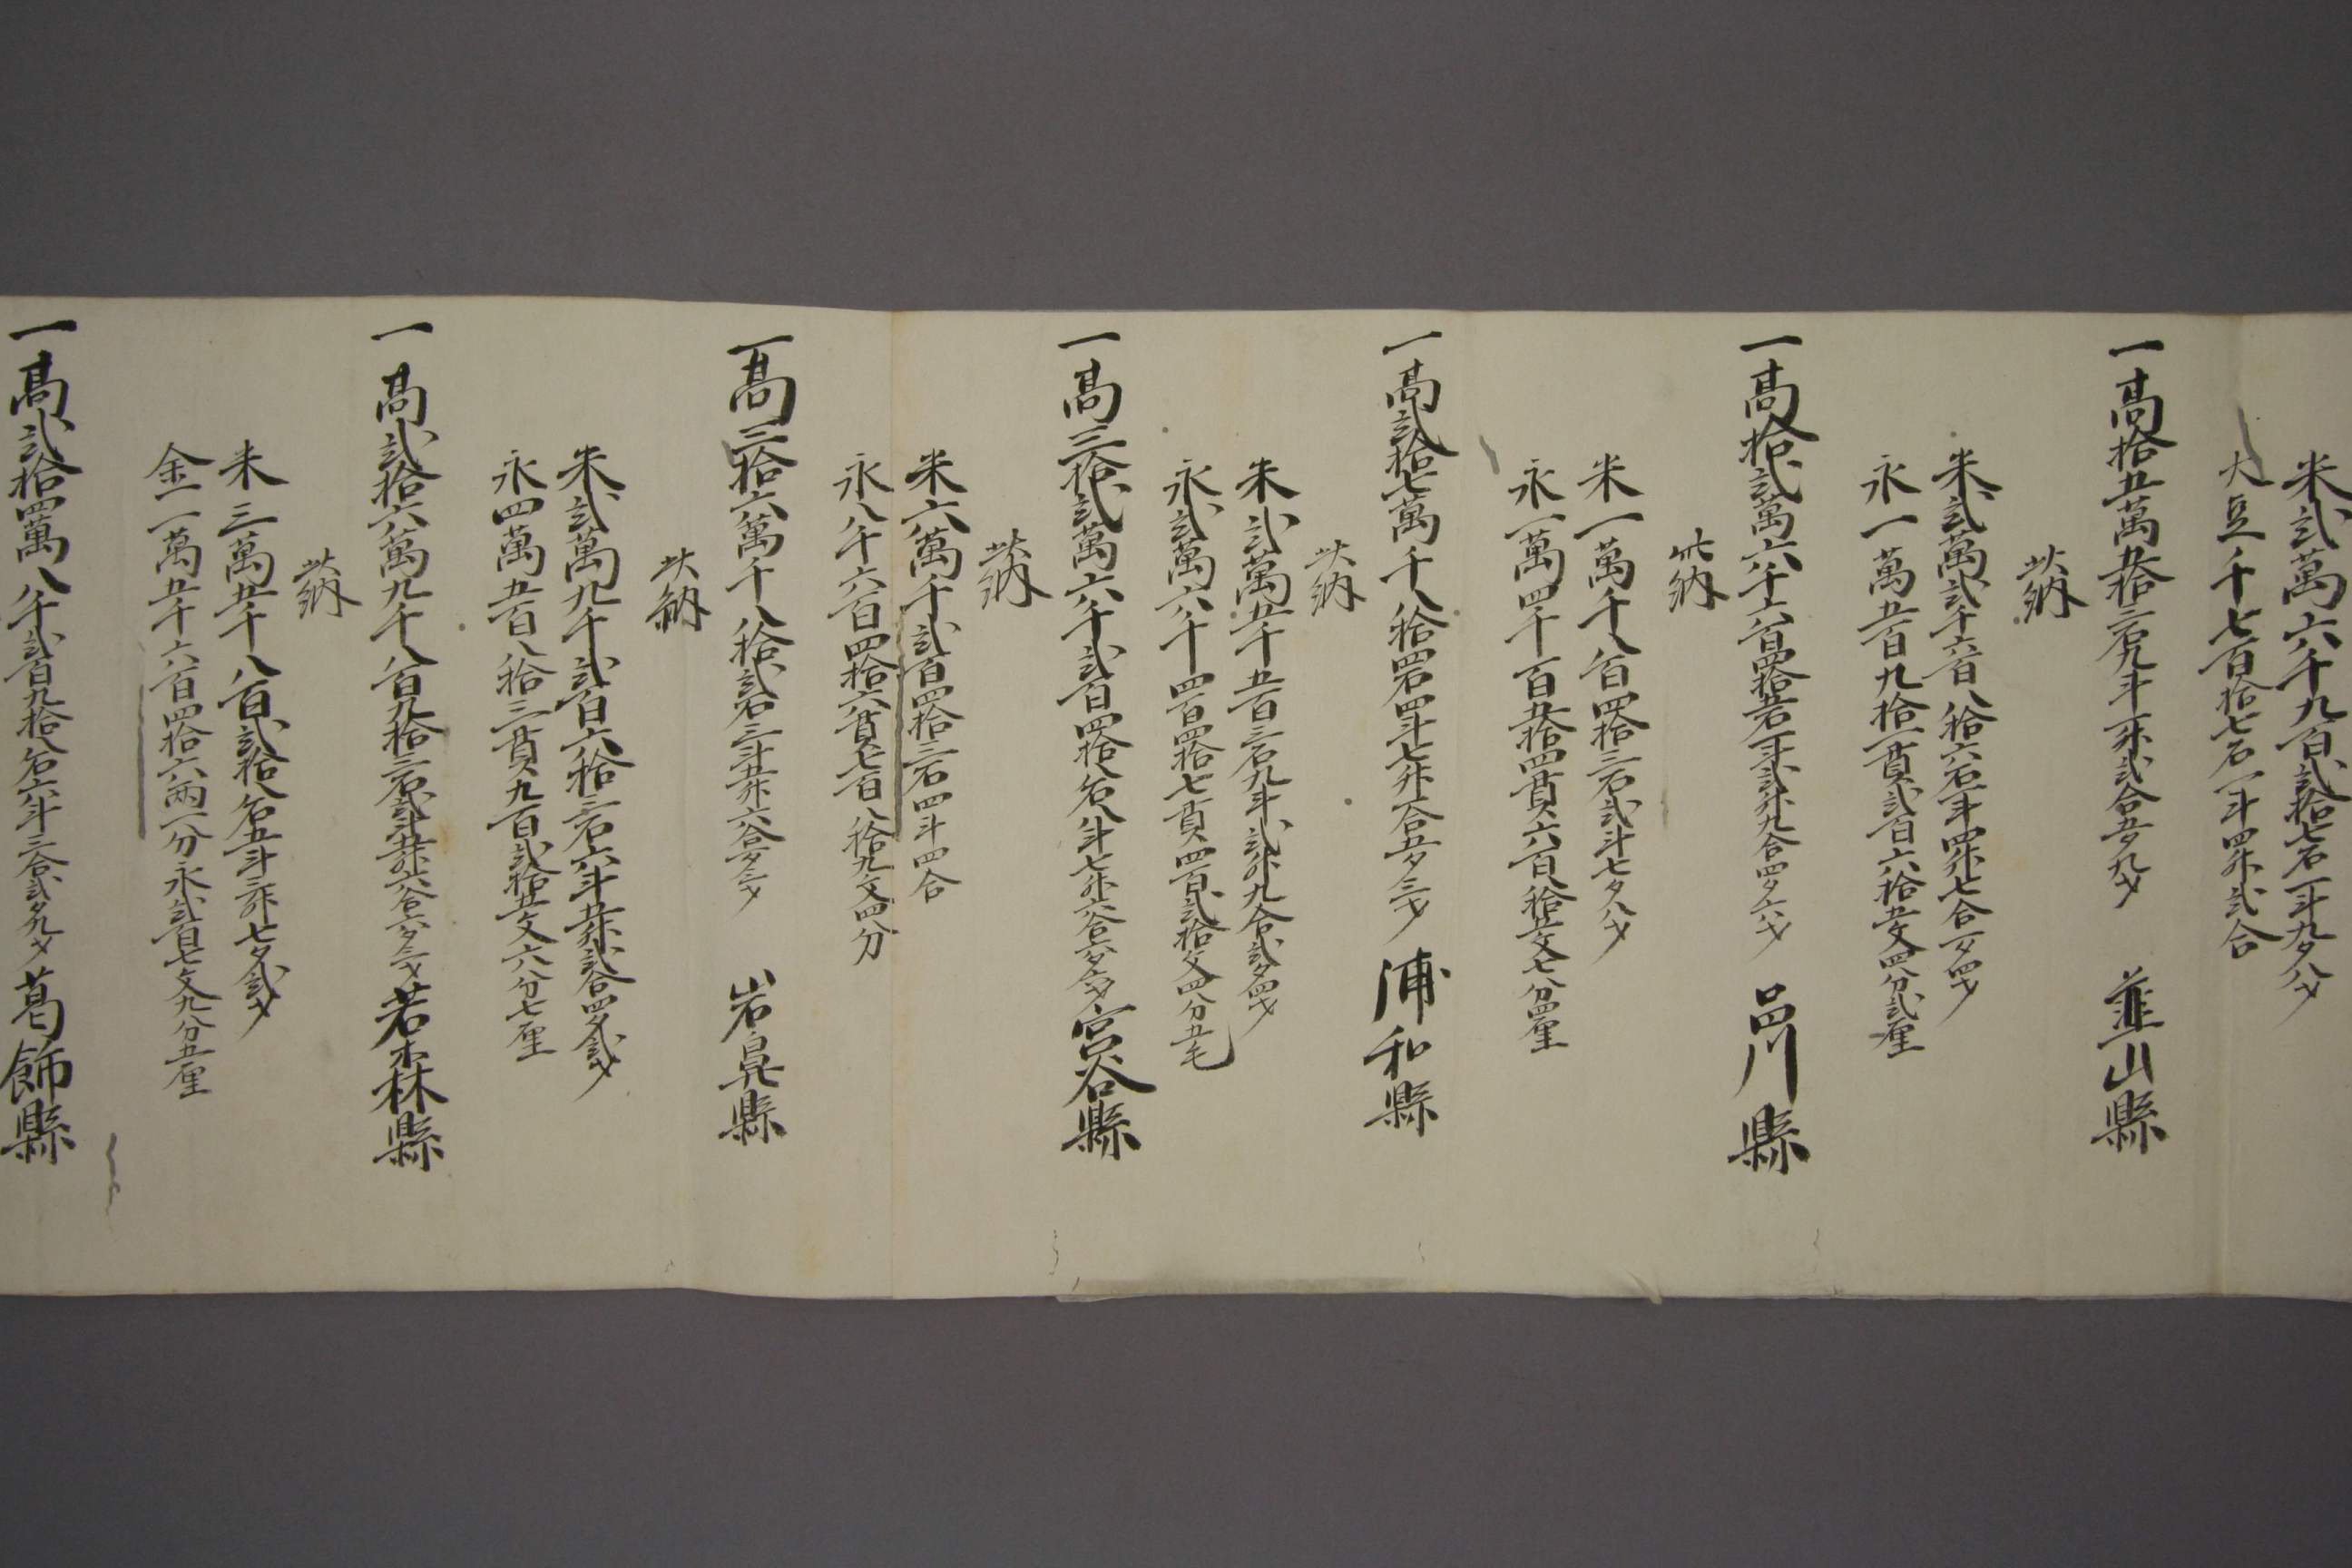 米弐萬六千九百弐拾七石一斗九夕八才
大豆千七百拾七石一斗四升弐合
一高拾五萬五拾三石九斗一升弐合五夕九才 韮山縣
此納
米弐萬弐千六百八拾六石一斗四升七合一夕四才
永一萬五百九拾一貫弐百六拾五文四分弐厘
一高拾弐萬六千六百四拾五石一斗弐升九合四夕六才 品川縣
此納
米一萬千八百四拾三石弐斗七夕八才
永一萬四千百五拾四貫六百拾五文七分四厘
一高弐拾七萬千八拾四石四斗七升一合五夕三才 浦和縣
此納
米弐萬五千五百三石九斗弐升九合弐夕四才
永弐萬六千四百四拾七貫四百弐拾文四分五毛
一高三拾弐萬六千弐百四拾八石八斗七升六合六夕六才 宮谷縣
此納
米六萬千弐百四拾三石四斗四合
永八千六百四拾六貫七百八拾九文四分
一高三拾六萬千八拾弐石三斗五升六合一夕三才 岩鼻縣
此納
米弐萬九千弐百六拾三石六斗五升弐合四夕弐才
永四萬五百八拾三貫九百弐拾五文六分七厘
一高弐拾六萬九千八百九拾三石弐斗五升六合六夕三才 若森縣
此納
米三萬五千八百弐拾八石五斗三升七夕弐才
金一萬五千六百四拾六両一分永弐百七文九分五厘
一高弐拾四萬八千弐百九拾八石六斗三合弐夕九才 葛飾縣